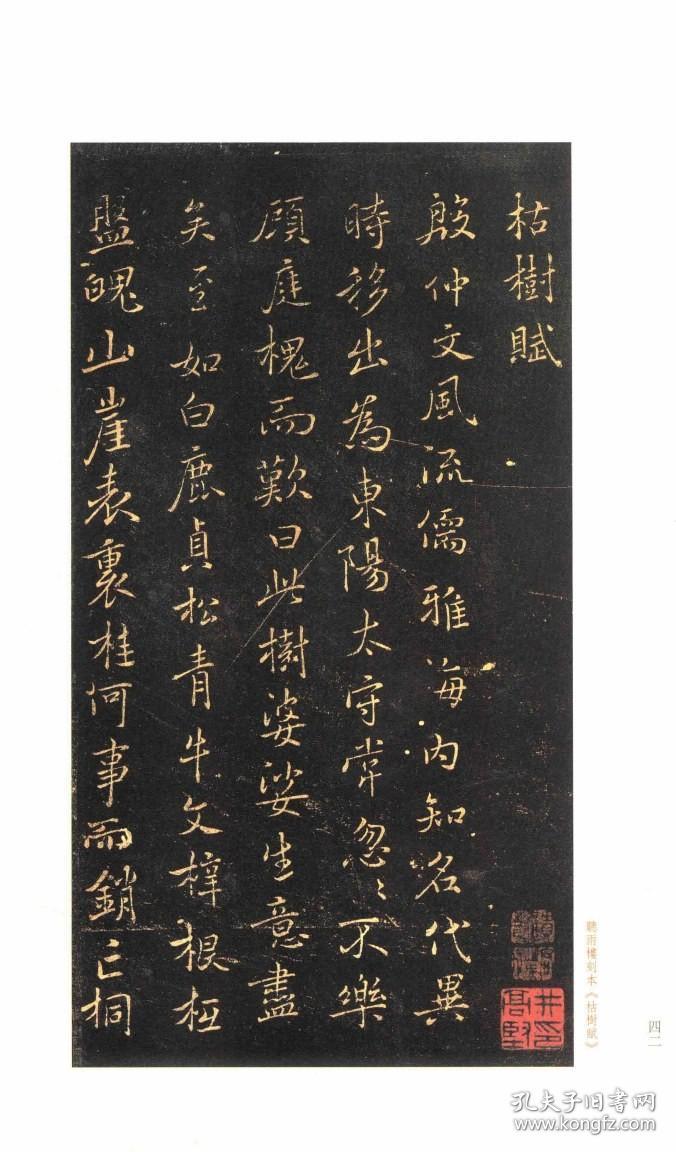 枯樹賦
殷仲文風流儒雅海内知名代異
時移出為東陽太守常忽〻不樂
顧庭槐而歎曰此樹婆娑生意盡
矣至如白鹿貞松青牛文梓根柢
盤魄山崖表裏桂何事而銷亡桐
聽雨樓刻本《枯樹賦》
四二
孔夫子旧书网
www.kongfz.com